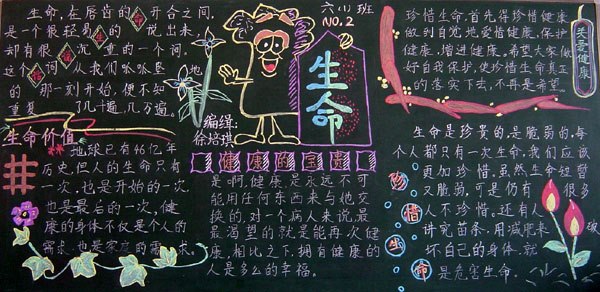 生命,在唇齿的 开合之间,
是一个很轻易的 说出来,
却有很 沉重的一个词,
这个 词 从我们呱呱坠地
的 那一刻开始,便不知
重复 了几千遍,几万遍。
生命价值
地球已有46亿年
历史,但人的生命只有
一次,也是开始的一次
也是最后的一次,健
康的身体不仅是个人的
需求 也是家庭的需 求。
六(1)班
NO.2
生命
编缉:
徐培琪
健康的宝贵
是啊,健康是永远不可
能用任何东西来与她交
换的,对一个病人来说,最
最渴望的就是能再次健
康,相比之下,拥有健康的
人是多么的幸福。
珍惜生命,首先得珍惜健康
做到自觉地爱惜健康,保护
健康,增进健康,希望大家做
好自我保护,使珍惜生命真正
的落实下去,不再是希望。
关爱健康
生命是珍贵的,是脆弱的,每
个人都只有一次生命,我们应该
更加珍惜,虽然生命短暂
又脆弱,可是仍有 很多
人不珍惜,还有人
讲究苗条,用减肥来 破
坏自己的身体,就
是危害生命。
珍惜生命